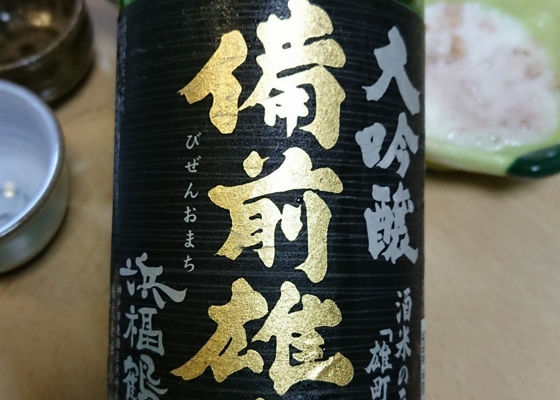 大吟醸
備前雄
びぜんおまち
浜福鶴
酒米の
「雄町